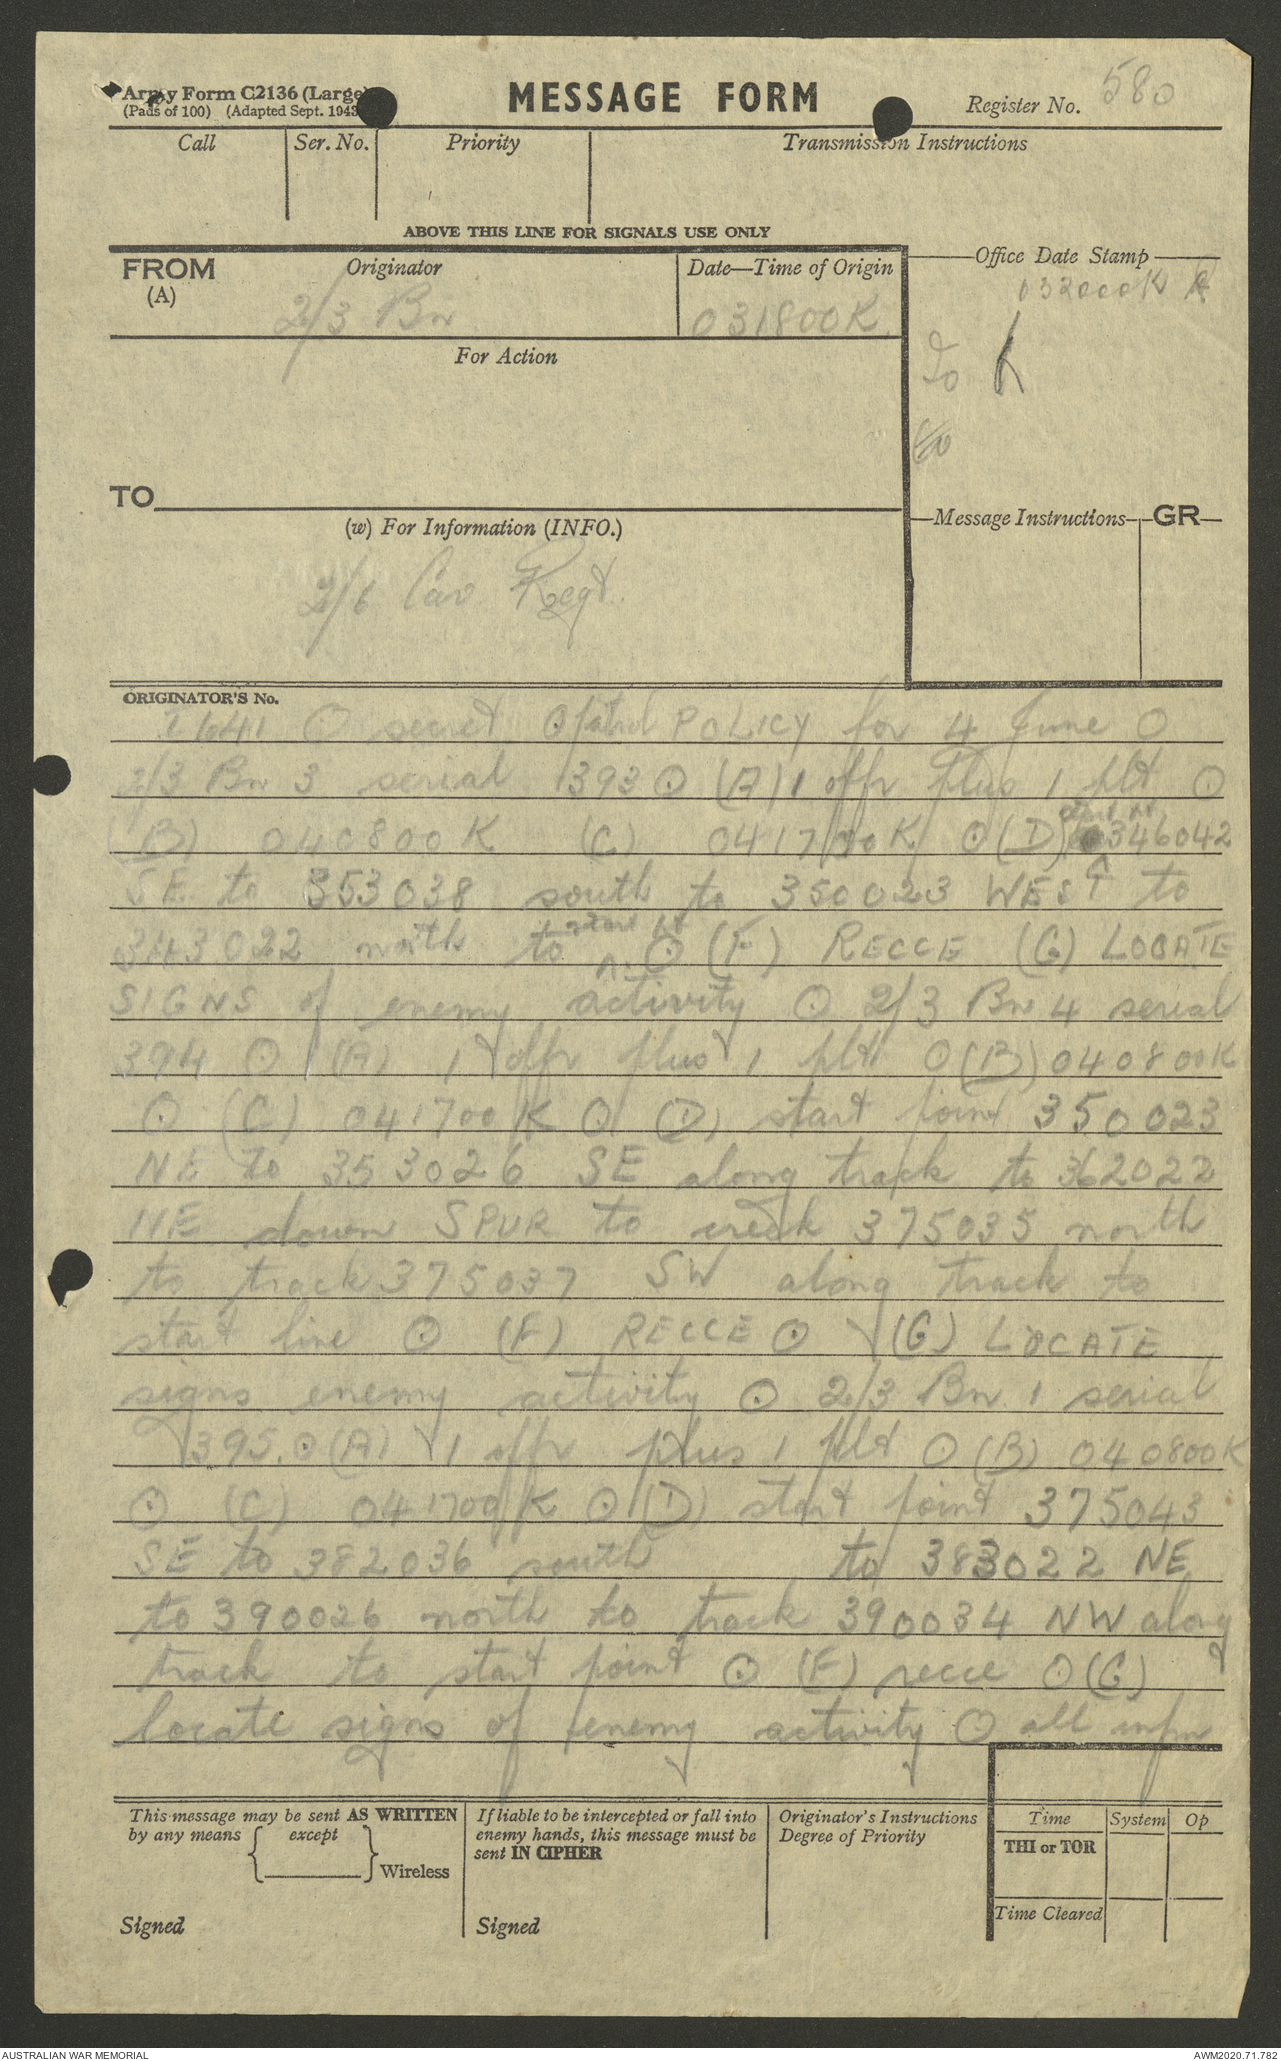 Army Form C2136 (Large)
(Pads of 100) (Adapted Sept. 1943
MESSAGE FORM
Register No. 580
Call
Ser. No.
Priority
Transmission Instructions
ABOVE THIS LINE FOR SIGNALS USE ONLY
FROM
(A)
Originator
2/3 Bn
Date—Time of Origin
031800K
Office Date Stamp
032000K
To
For Action
TO
(w) For Information (INFO.)
2/6 Cav Regt.
Message Instructions
GR
ORIGINATOR'S No.
O secret O patrol POLICY for 4 June O
2/3 Bn 3 serial 393 O (A) 1 offr plus 1 plt O
(B) 040800K (C) 041700K O (D) start pt 346042
SE to 353038 south to 350023 WEST to
343022 north to start pt O (F) RECCE (G) LOCATE
SIGNS of enemy activity O 2/3 Bn 4 serial
394 O (A) 1 offr plus 1 plt O (B) 040800K
O (C) 041700K O (D) start point 350023
NE to 353026 SE along track to 362022
NE down SPUR to creek 375035 north
to track 375037 SW along track to
start line O (F) RECCE O (G) LOCATE
signs enemy activity O 2/3 Bn 1 serial
395. O (A) 1 offr plus 1 plt O (B) 040800K
O (C) 041700K O (D) start point 375043
SE to 382036 south to 383022 NE
to 390026 north to track 390034 NW along
track to start point O (F) recce O (G)
locate signs of enemy activity O all infm
This message may be sent AS WRITTEN
by any means { except } Wireless
Signed
If liable to be intercepted or fall into
enemy hands, this message must be
sent IN CIPHER
Signed
Originator's Instructions
Degree of Priority
Time
System
Op
THI or TOR
Time Cleared
AUSTRALIAN WAR MEMORIAL
AWM2020.71.782